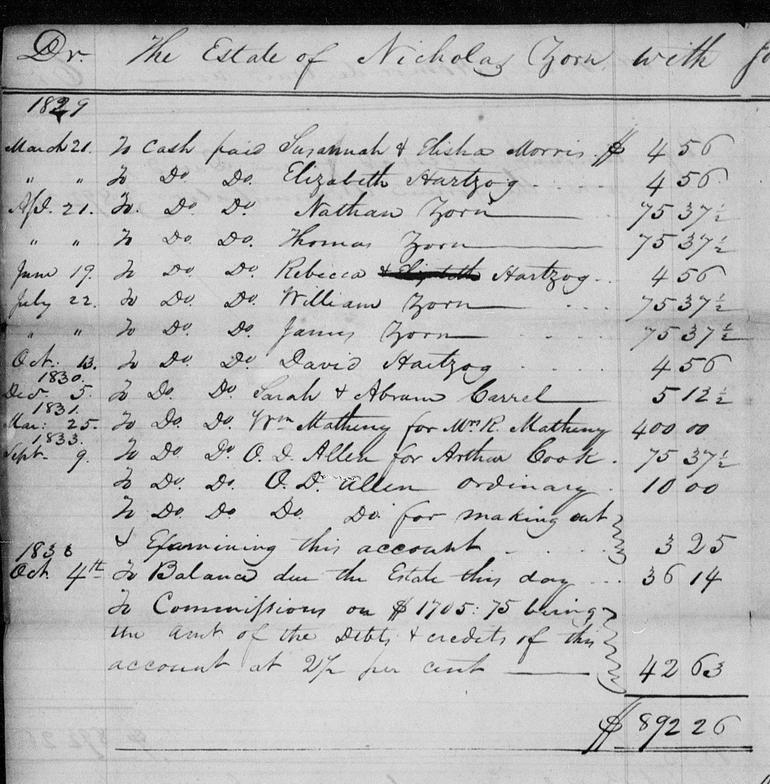 Dr. The Estate of Nicholas Zorn with Jo
1829
March 21. To Cash paid Susannah & Elisha Morris. $ 4 56
" " To Do Do. Elizabeth Hartzog.... 4 56
Apl. 21. To. Do Do. Nathan Zorn 75 37½
" " To Do. Do. Thomas Zorn 75 37½
June 19. To Do. Do. Rebecca Hartzog.. 4 56
July 22. To Do. Do. William Zorn 75 37½
" " To Do. Do. James Zorn 75 37½
Oct: 13. To Do. Do. David Hartzog.... 4 56
1830.
Decr. 5. To Do. Do. Sarah & Abram Carrel 5 12½
1831.
Mar: 25. To Do. Do. Wm Matheny for Mrs R. Matheny 400 00
1833.
Sept. 9. To Do Do O. D. Allen for Arthur Cook. 75 37½
To Do. Do. O. D. Allen ordinary. 10 00
To Do. Do. Do. Do. for making out
& Examining this account.... 3 25
1833
Oct. 4th To Balance due the Estate this day... 36 14
To Commissions on $ 1705:75 being
the amt of the Debts & credits of this
account at 2½ per cent 42 63
$ 892 26